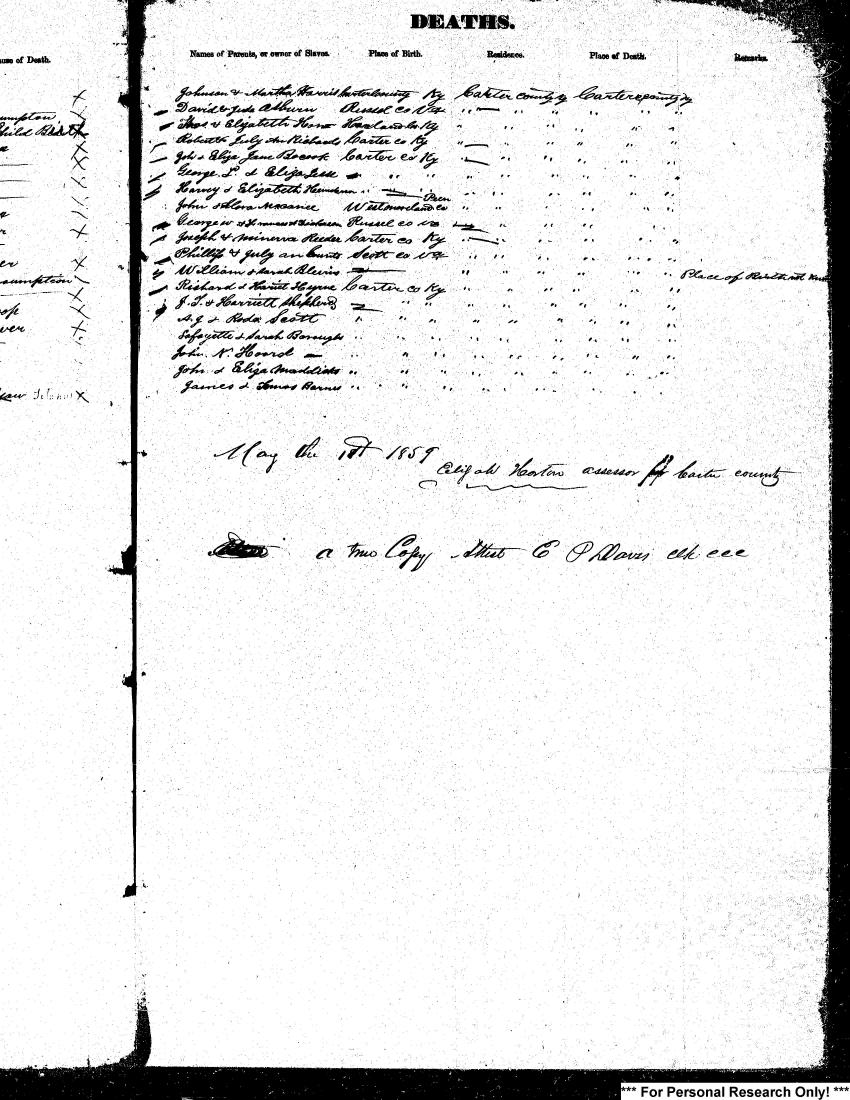 DEATHS.
use of Death.
Names of Parents, or owner of Slaves. Place of Birth. Residence. Place of Death. Remarks.
Johnson & Martha Harris Carter County Ky Carter county Carter county
David & Jude Asburn Russel co Va " — " " " "
Thos & Elizabeth Harland Co Ky " " " " "
Robert & July An Richards Carter co Ky " — " " " "
John & Eliza Jane Bocook Carter co Ky " — " " " "
George L & Eliza " " " " " " "
Harvey & Elizabeth " " " " " "
John & Westmoreland co Penn " " " " "
George W & Russel co Va " " " "
Joseph & Minerva Reeder Carter co Ky " — " " " "
Phillip & July an Counts Scott co Va " " " " "
William & Sarah Blevins — " " " " " Place of Birth not
Richard & Harriet Carter co Ky " " " " "
J. T. & Harriett Shepherd " " " " "
A. J & Roda Scott " " " " " " "
Lafayette & Sarah Boroughs " " " " " " "
John. N. Hoord — " " " " " " "
John & Eliza Maddicks " " " " " " "
James & Barnes " " " " " " "
umption
Child Birth
sumption
ver
May the 18th 1859
Elijah Horton assessor for Carter county
a true Copy Attest E P Davis clk ccc
*** For Personal Research Only! ***